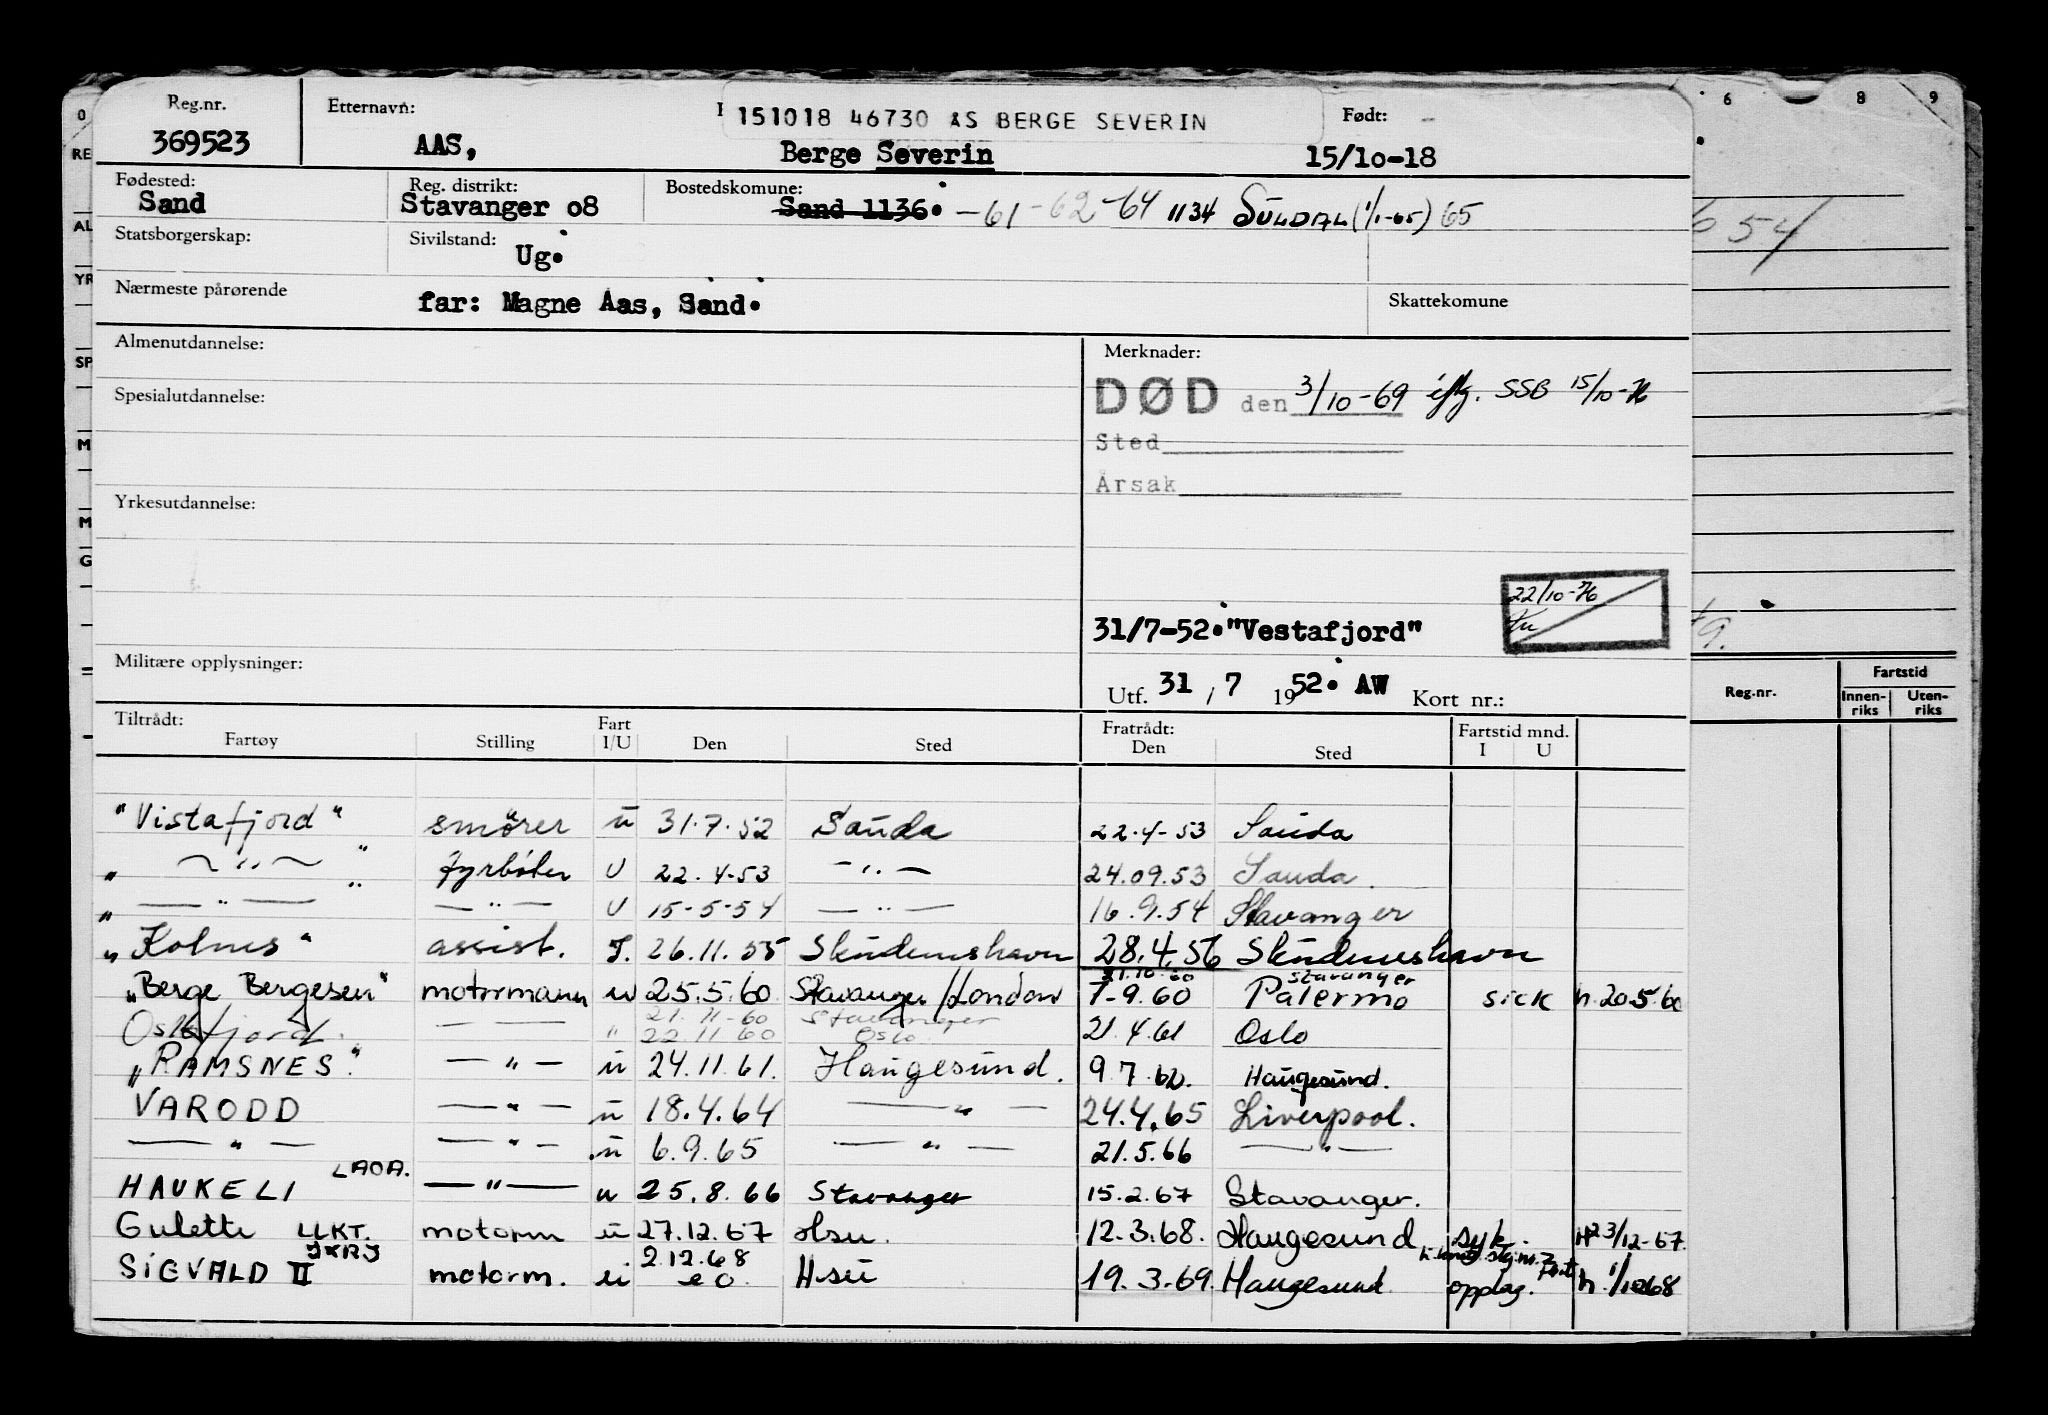 Reg.nr. Etternavn: 151018 46730 AS BERGE SEVERIN Født:
369523 AAS, Berge Severin 15/10-18
Fødested: Reg. distrikt: Bostedskomune:
Sand Stavanger 08 Sand 1136. -61-62-64 1134 SULDAL (1/1-65) 65
Statsborgerskap: Sivilstand:
Ug.
Nærmeste pårørende far: Magne Aas, Sand. Skattekomune
Almenutdannelse: Merknader:
DØD den 3/10-69 SSB 15/10-76
Spesialutdannelse:
Sted
Årsak
Yrkesutdannelse:
22/10-76
31/7-52."Vestafjord"
Militære opplysninger:
Utf. 31 / 7 1952. AW Kort nr.:
Tiltrådt: Fart Fratrådt: Fartstid mnd.
Fartøy Stilling I/U Den Sted Den Sted I U
"Vistafjord" smører u 31.7.52 Sauda 22.4-53 Sauda
" — " — " fyrbøter U 22.4-53 — " — 24.09.53 Sauda.
" — " — " — " — U 15-5-54 — " — 16.9.54 Stavanger
"Kolnes" assist. I. 26.11.55 Skudeneshavn 28.4.56 Skudeneshavn
21.10.60 Stavanger
"Berge Bergesen" motormann u 25.5.60 Stavanger/London 7-9.60 Palermo sick h.20.5.60
21.11-60 Stavanger
Oslofjord. — " 22.11 60 Oslo 21.4.61 Oslo
"RAMSNES." — " — u 24.11.61. Haugesund. 9.7.62. Haugesund.
VARODD — " — u 18.4.64 — " — 24.4.65 Liverpool.
— " — — " — u 6.9.65 — " — 21.5.66 — " —
HAUKELI LAOA. — " — u 25.8.66 Stavanger 15.2.67 Stavanger.
Gulette LLKT. motorm u 27.12.67 Hsu. 12.3.68. Haugesund syk. H 23/12-67.
JXRJ 2.12.68
SIGVALD II motorm. u Hsu 19.3-69. Haugesund opplag.
0
RE
AL
YR
SP
M
M
G
6 8 9
54
9.
Reg.nr. Fartstid
Innenriks Utenriks